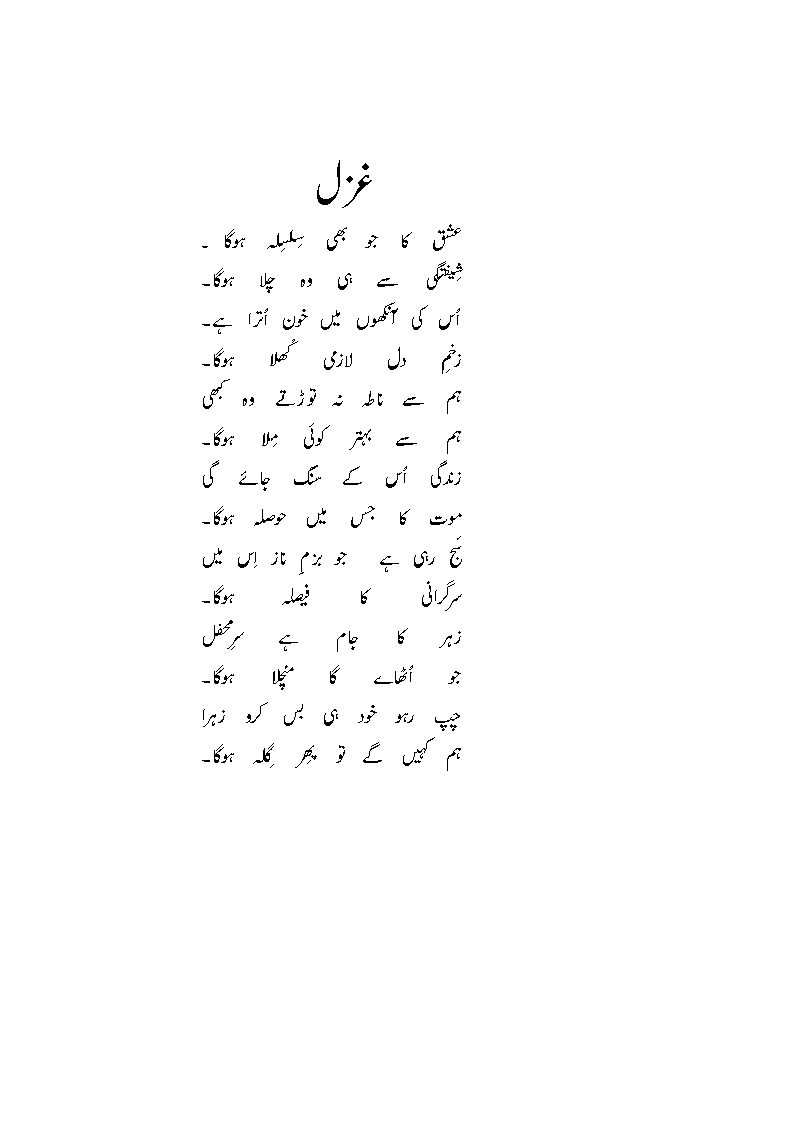 غزل
عشق کا جو بھی سِلسِلہ ہوگا ۔
شِیفتگی سے ہی وہ چلا ہوگا۔
اُس کی آنکھوں میں خون اُترا ہے۔
زخمِ دل لازمی کُھلا ہوگا۔
ہم سے ناطہ نہ توڑتے وہ کبھی
ہم سے بہتر کوئی مِلا ہوگا۔
زندگی اُس کے سنگ جائے گی
موت کا جس میں حوصلہ ہوگا۔
سَج رہی ہے جو بزمِ ناز اِس میں
سرگرانی کا فیصلہ ہوگا۔
زہر کا جام ہے سرِمحفل
جو اُٹھاے گا منچلا ہوگا۔
چپ رہو خود ہی بس کرو زہرا
ہم کہیں گے تو پِھر گِلہ ہوگا۔